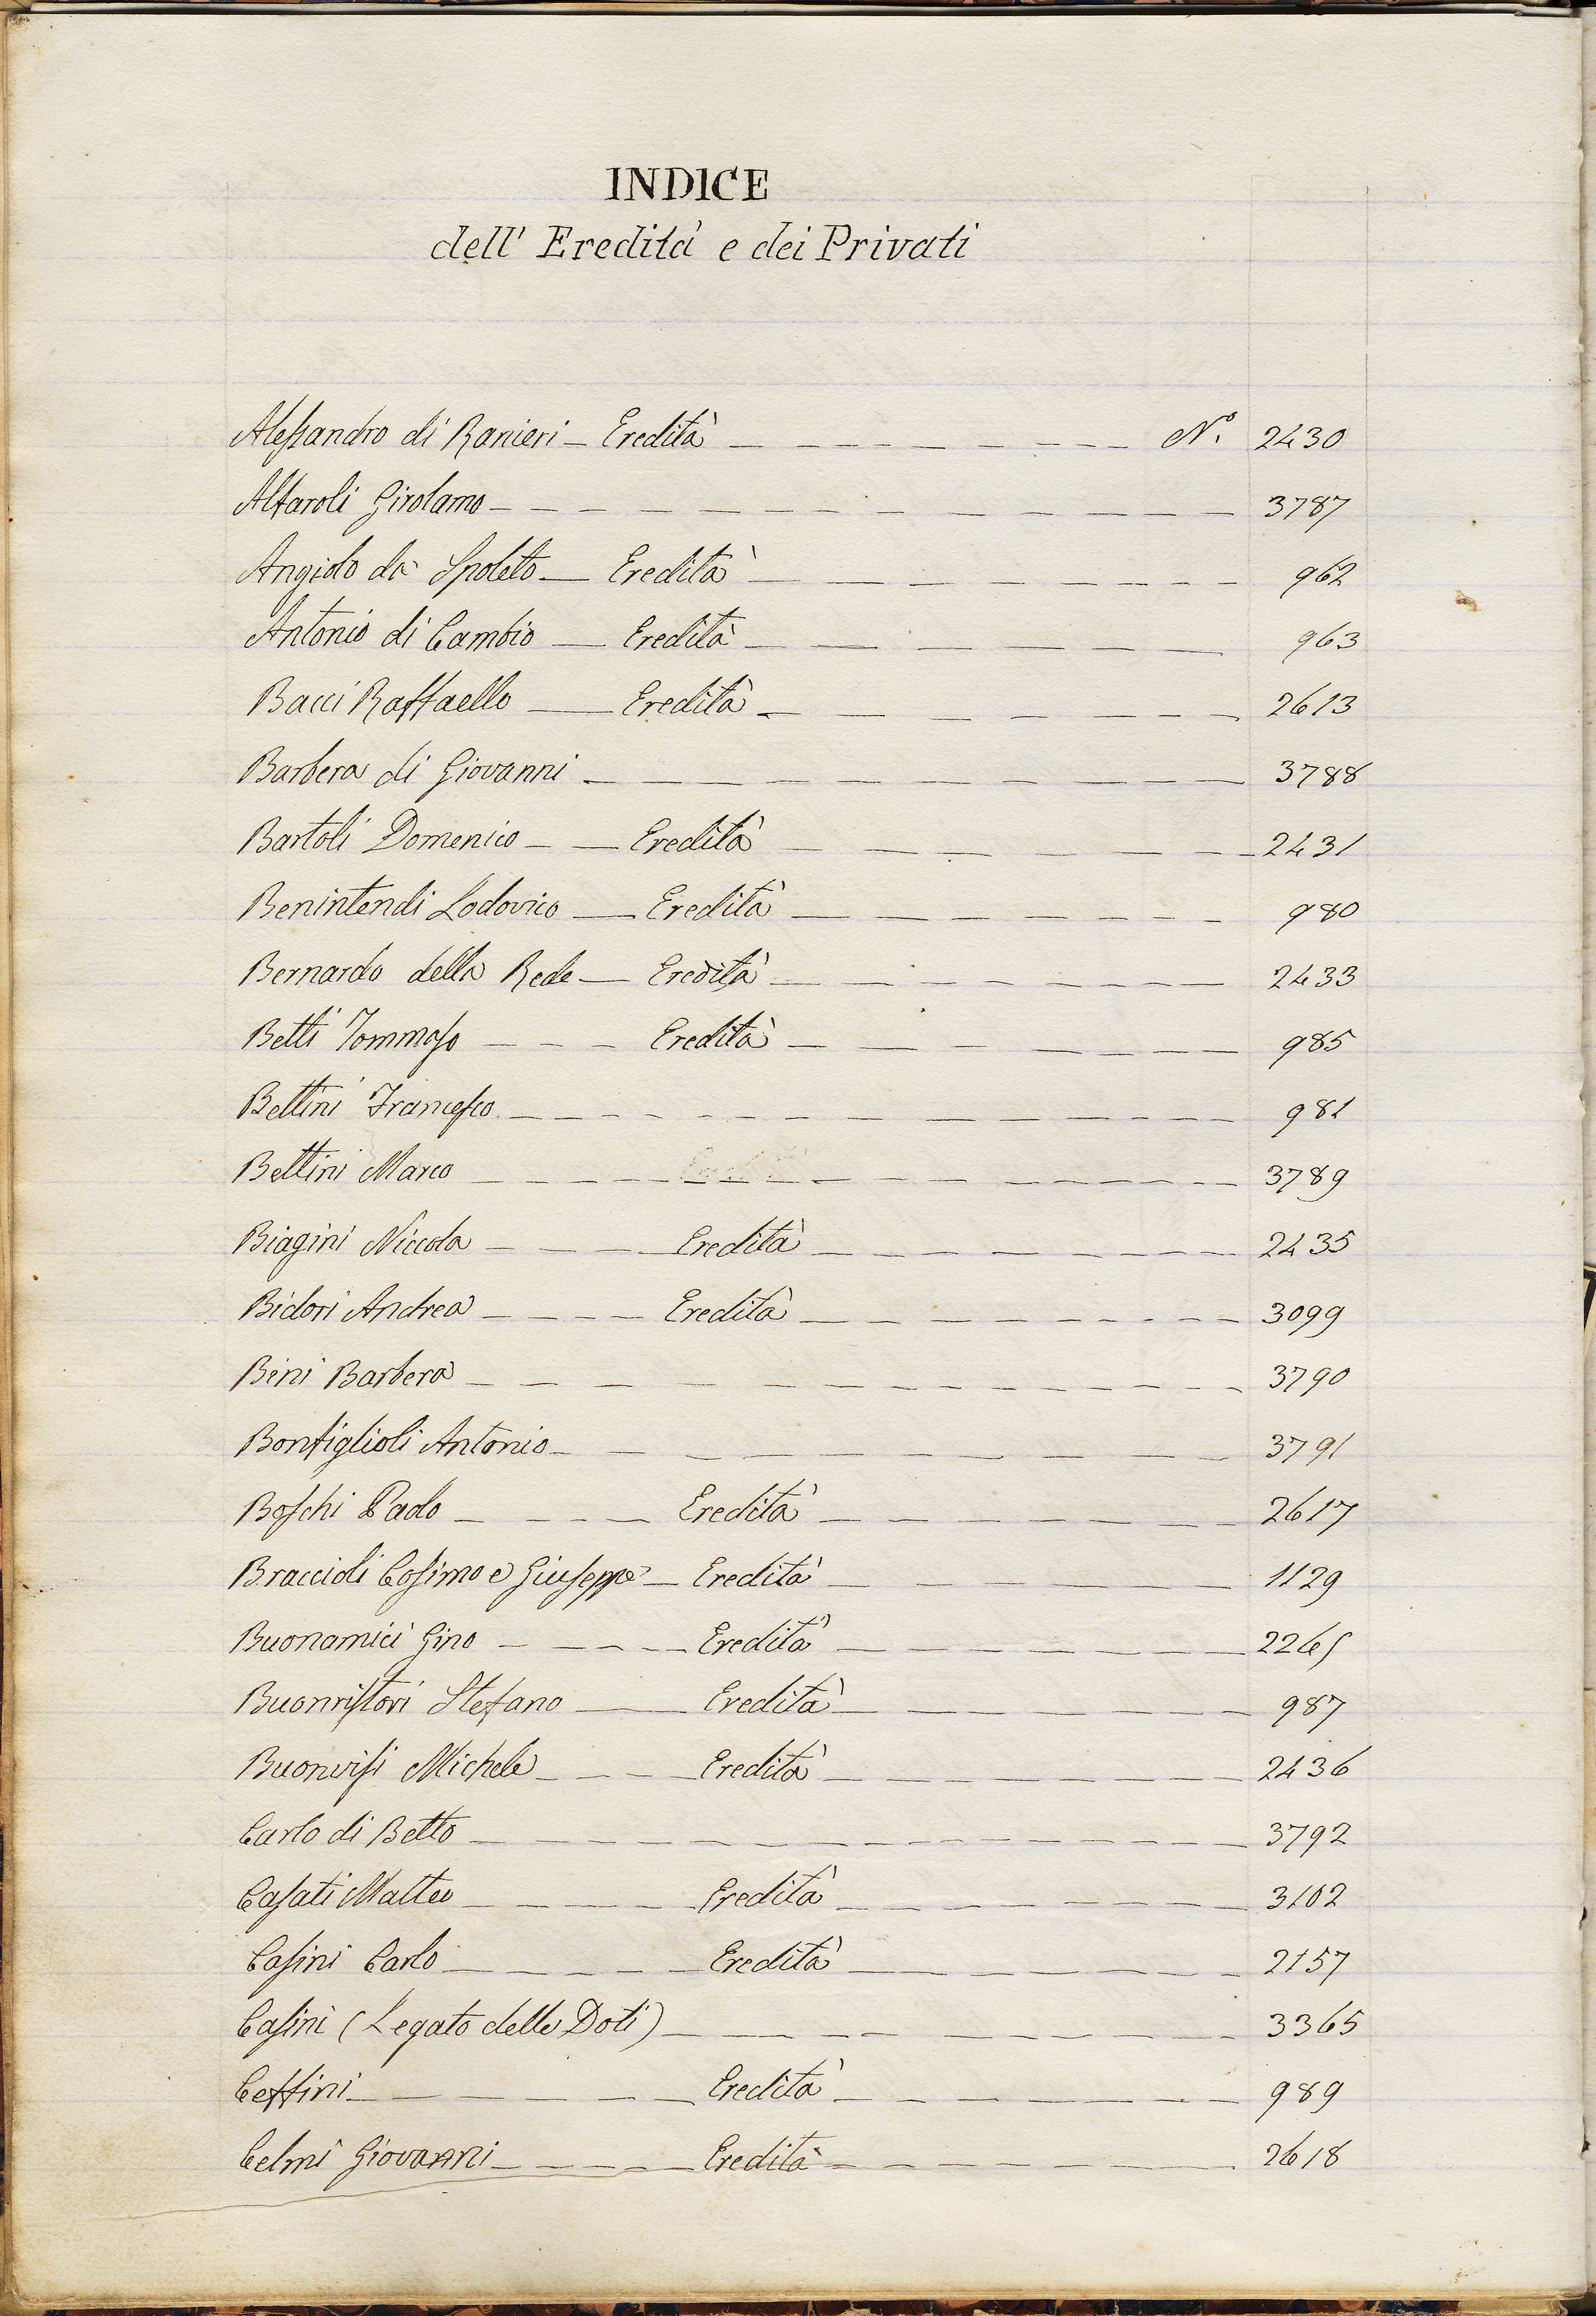 INDICE
dell' Eredità e dei Privati
Alessandro di Ranieri — Eredità — — — — — — — — — N.º 2430
Alfaroli Girolamo — — — — — — — — — — — — 3787
Angiolo da Spoleto — Eredità — — — — — — — — 962
Antonio di Cambio — Eredità — — — — — — — 963
Bacci Raffaello — Eredità — — — — — — — — 2613
Barbera di Giovanni — — — — — — — — — — 3788
Bartoli Domenico — — Eredità — — — — — — — — 2431
Benintendi Lodovico — Eredità — — — — — — — — 980
Bernardo della Rede — Eredità — — — — — — — — 2433
Betti Tommaso — — — Eredità — — — — — — — 985
Bettini Francesco — — — — — — — — — — — — 981
Bettini Marco — — — — — — — — — — — — 3789
Biagini Niccola — — — Eredità — — — — — — — 2435
Bidori Andrea — — — — Eredità — — — — — — — — 3099
Bini Barbera — — — — — — — — — — — — 3790
Bonfiglioli Antonio — — — — — — — — — — 3791
Boschi Paolo — — — — Eredità — — — — — — — 2617
Braccioli Cosimo e Giuseppe — Eredità — — — — — — 1129
Buonamici Gino — — — — Eredità — — — — — — — 2265
Buonristori Stefano — — Eredità — — — — — — — 987
Buonvisi Michele — — — Eredità — — — — — — — 2436
Carlo di Betto — — — — — — — — — — — — 3792
Casati Matteo — — — — — Eredità — — — — — — — 3102
Casini Carlo — — — — — Eredità — — — — — — — 2157
Casini (Legato delle Doti) — — — — — — — — — 3365
Ceffini — — — — — — Eredità — — — — — — — 989
Celmi Giovanni — — — — Eredità — — — — — — — 2618